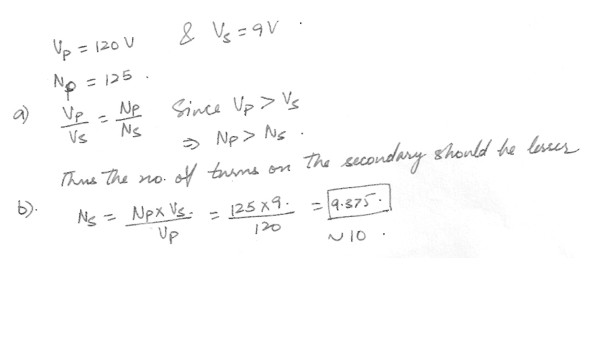 Vp = 120 V & Vs = 9V .
Np = 125 .
a) Vp/Vs = Np/Ns Since Vp > Vs
⇒ Np > Ns .
Thus the no. of turns on the secondary should be lesser
b). Ns = Np x Vs./Vp = 125 x 9./120 = 9.375.
~ 10 .